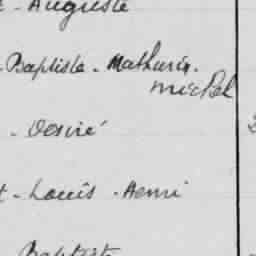 - Auguste
- Baptiste - Mathurin.
michel
- Désiré
t - Louis - Henri
Baptiste